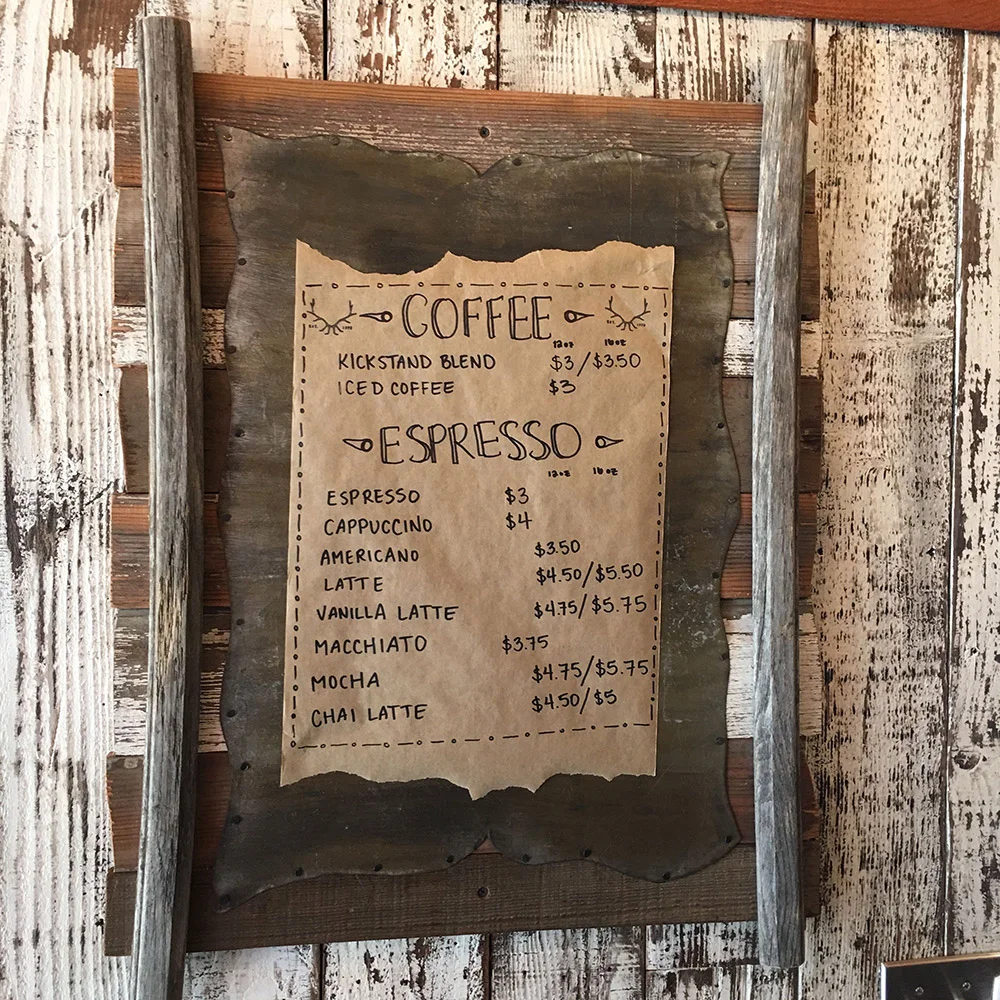 COFFEE
12oz 16oz
KICKSTAND BLEND $3/$3.50
ICED COFFEE $3
ESPRESSO
12oz 16oz
ESPRESSO $3
CAPPUCCINO $4
AMERICANO $3.50
LATTE $4.50/$5.50
VANILLA LATTE $4.75/$5.75
MACCHIATO $3.75
MOCHA $4.75/$5.75
CHAI LATTE $4.50/$5